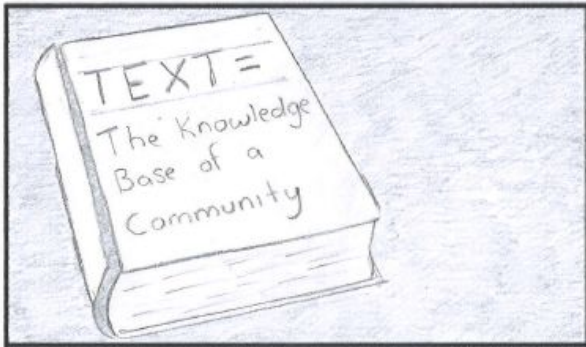 TEXT =
The Knowledge
Base of a
Community